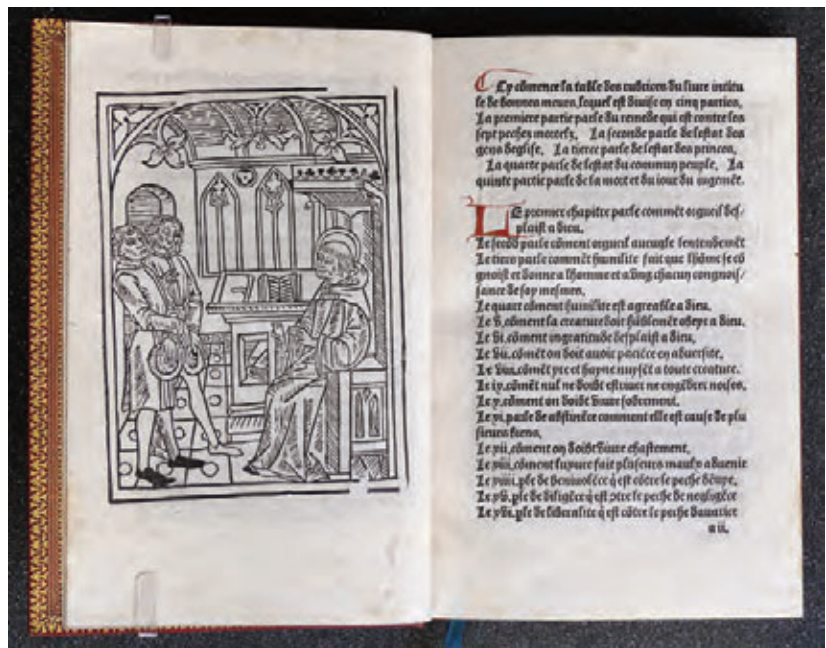 Cy cōmence la table des rubrices du liure intitu
le de bonnes meurs, lequel est diuise en cinq parties,
La premiere partie parle du remede qui est contre les
sept pechez mortelz, La seconde parle de lestat des
gens deglise, La tierce parle de lestat des princes,
La quarte parle de lestat du commun peuple, La
quinte partie parle de la mort et du iour du iugemēt.
LE premier chapitre parle commēt orgueil des/
plaist a dieu.
Le secōd parle cōment orgueil aueugle lentendemēt
Le tiers parle commēt humilite fait que lhōme se cō
gnoist et donne a lhomme et a vng chacun congnois/
sance de soy mesmes,
Le quart cōment humilite est agreable a dieu,
Le v, cōment la creature doit hūblemēt obeyr a dieu,
Le vi, cōment ingratitude desplaist a dieu,
Le vii, cōmēt on doit auoir paciēce en aduersite,
Le viii, cōmēt yre et hayne nuysēt a toute creature,
Le ix, cōmēt nul ne doibt estriuer ne engēdrer noises,
Le x, cōment on doibt viure sobrement,
Le xi, parle de abstinēce comment elle est cause de plu
sieurs biens,
Le xii, cōment on doibt viure chastement,
Le xiii, cōment luxure fait plusieurs maulx aduenir
Le xiiii, ple de beniuolēce q̄ est cōtre le peche dēuye,
Le xv, ple de diligēce q̄ est ɔtre le peche de negligēce
Le xvi, ple de liberalite q̄ est cōtre le peche dauarice
a ii,